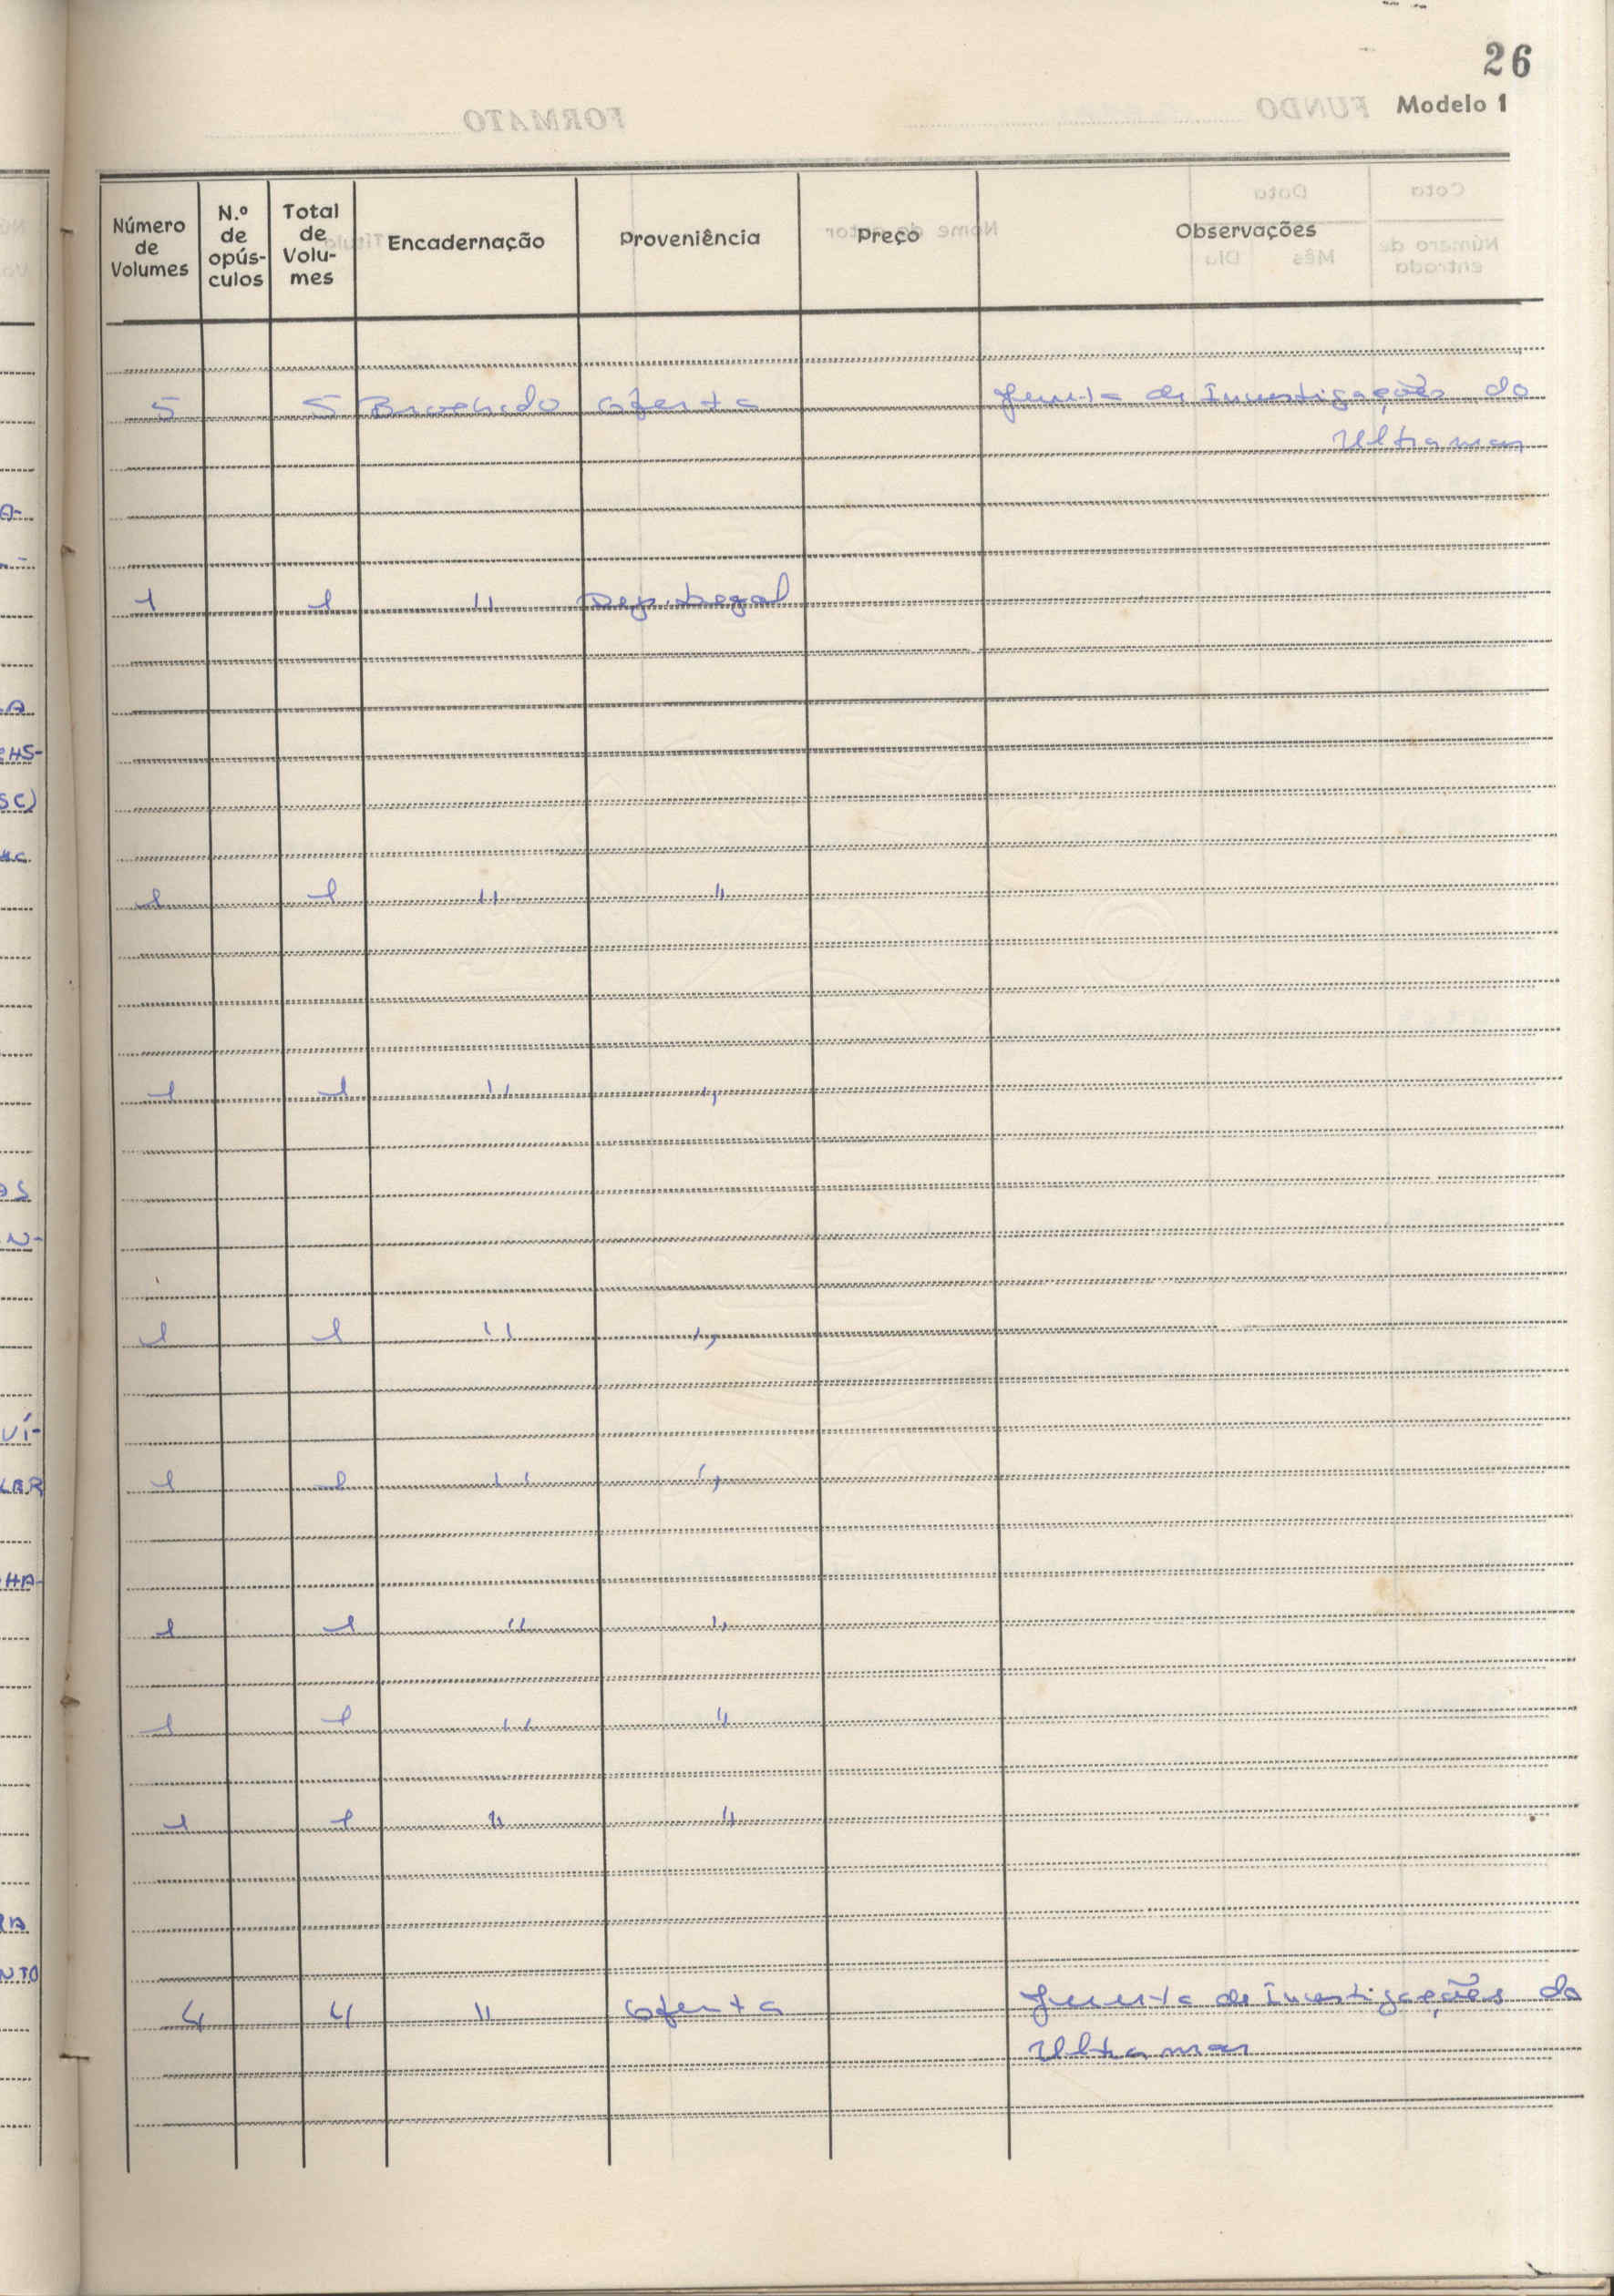 26
Modelo 1
Número de Volumes
N.º de opús-culos
Total de Volu-mes
Encadernação
Proveniência
Preço
Observações
5 5 Brochado Oferta Junta de Investigações do
Ultramar
1 1 " Dep. Legal
1 1 " "
1 1 " "
1 1 " "
1 1 " "
1 1 " "
1 1 " "
1 1 " "
4 4 " Oferta Junta de Investigações do
Ultramar